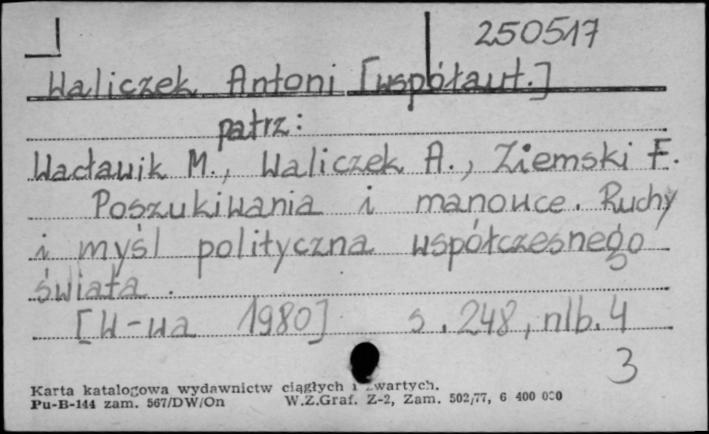 250517
Waliczek Antoni [współaut.]
patrz:
Wacławik M., Waliczek A., Ziemski F.
Poszukiwania i manowce. Ruchy
i myśl polityczna współczesnego
świata.
[W-wa 1980] s. 248, nlb. 4
3
Karta katalogowa wydawnictw ciągłych i zwartych.
Pu-B-144 zam. 567/DW/On W.Z.Graf. Z-2, Zam. 502/77, 6 400 000